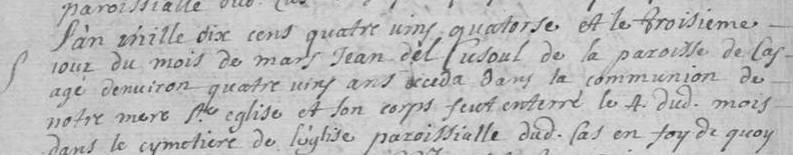 paroissialle dud.
L'an mille six cens quatre vins quatorse et le troisieme
iour du mois de mars Jean del Cusoul de la paroisse de Cas
agé denviron quatre vins ans deceda dans la communion de
notre mere Ste eglise et son corps feut enterré le 4. dud. mois
dans le cymetiere de léglise paroissialle dud. Cas en foy de quoy